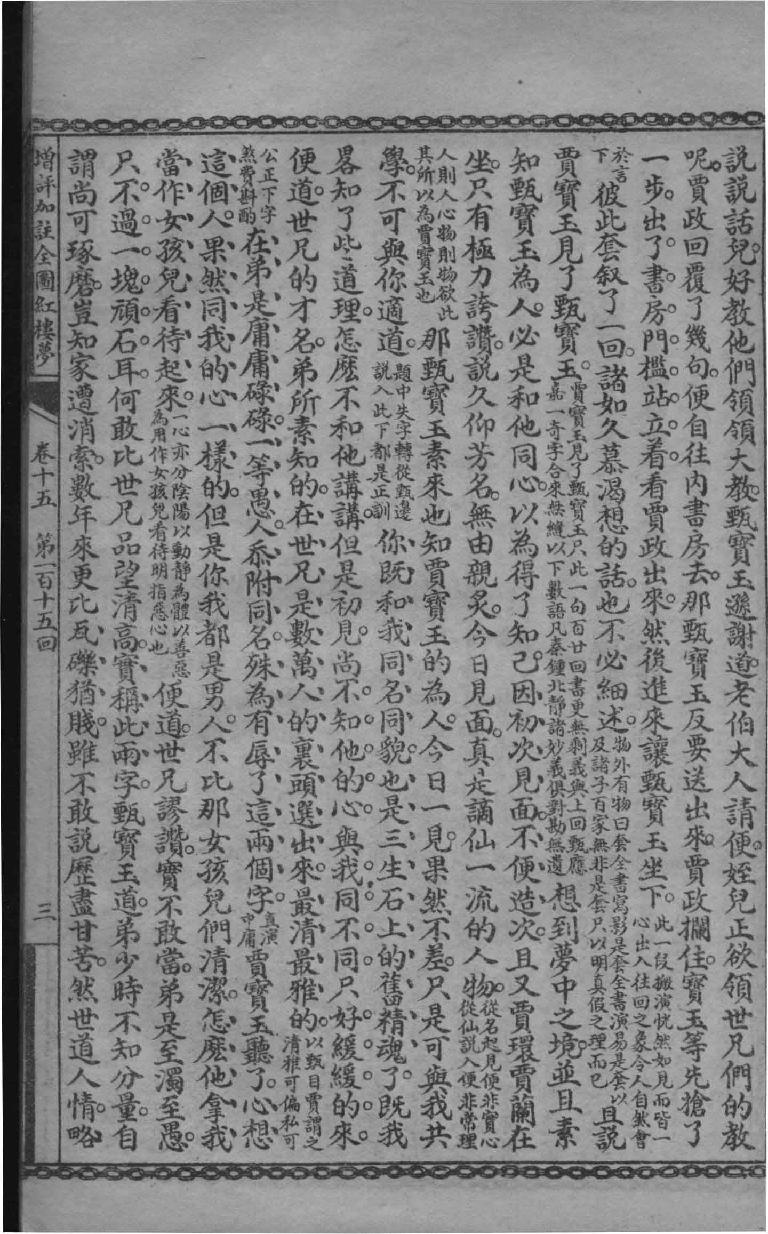 說說話兒好教他們領領大教甄寶玉遜謝道老伯大人請便姪兒正欲領世兄們的教
呢賈政回覆了幾句便自往內書房去那甄寶玉反要送出來賈政攔住寶玉等先搶了
一步出了書房門檻站立着看賈政出來然後進來讓甄寶玉坐下此一段搬演恍然如見而皆一心出入往回之象令人自然會
於言下彼此套叙了一回諸如久慕渴想的話也不必細述物外有物曰套全書寫影是套全書演易是套以及諸子百家無非是套只以明真假之理而已且說
賈寶玉見了甄寶玉賈寶玉見了甄寶玉只此一句百廿回書更無剩義與上回甄應嘉一奇字合來無縫以下數語凡秦鍾北靜諸妙義俱對勘無遺想到夢中之境並且素
知甄寶玉為人必是和他同心以為得了知己因初次見面不便造次且又賈環賈蘭在
坐只有極力誇讚說久仰芳名無由親炙今日見面真是謫仙一流的人物從名起見便非寶心從仙說入便非常理
人則人心物則物欲此其所以為賈寶玉也那甄寶玉素來也知賈寶玉的為人今日一見果然不差只是可與我共
學不可與你適道題中失字轉從甄邊說入此下都是正訓你既和我同名同貌也是三生石上的舊精魂了既我
畧知了些道理怎麼不和他講講但是初見尚不知他的心與我同不同只好緩緩的來
便道世兄的才名弟所素知的在世兄是數萬人的裏頭選出來最清最雅的以甄目賈謂之清雅可偏私可
公正下字煞費斟酌在弟是庸庸碌碌一等愚人忝附同名殊為有辱了這兩個字真演中庸賈寶玉聽了心想
這個人果然同我的心一樣的但是你我都是男人不比那女孩兒們清潔怎麼他拿我
當作女孩兒看待起來一心亦分陰陽以動靜為體以善惡為用作女孩兒看待明指惡心也便道世兄謬讚實不敢當弟是至濁至愚
只不過一塊頑石耳何敢比世兄品望清高實稱此兩字甄寶玉道弟少時不知分量自
謂尚可琢磨豈知家遭消索數年來更比瓦礫猶賤雖不敢說歷盡甘苦然世道人情略
增評加註全圖紅樓夢
卷十五 第一百十五回
三